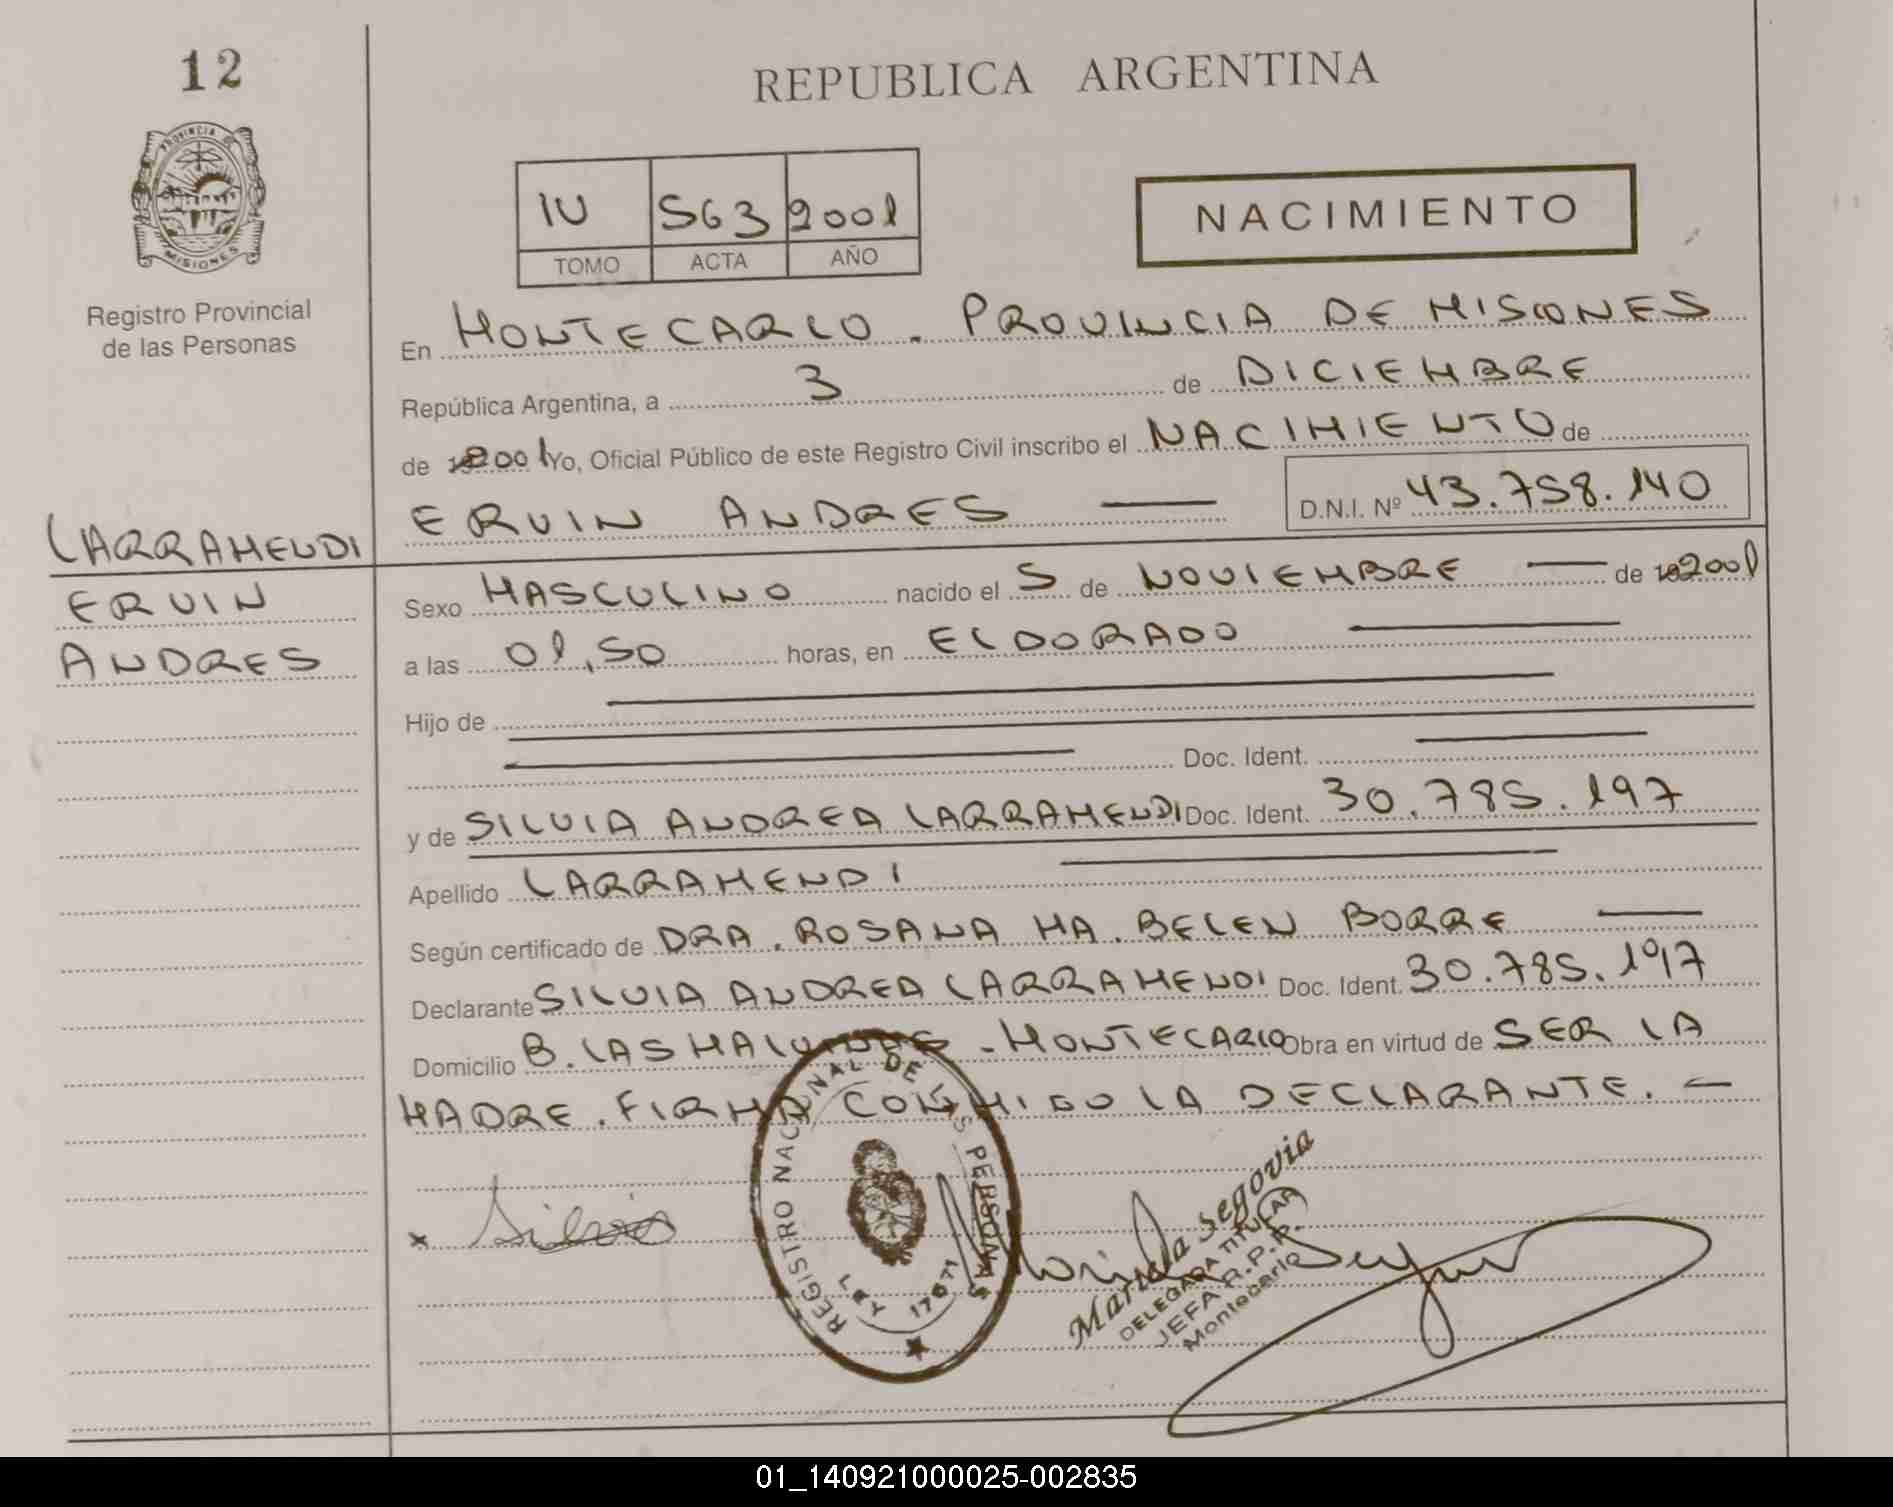 12
REPUBLICA ARGENTINA
PROVINCIA DE
MISIONES
Registro Provincial
de las Personas
IV 563 2001
TOMO ACTA AÑO
NACIMIENTO
En MONTECARLO. PROVINCIA DE MISIONES
República Argentina, a 3 de DICIEMBRE
de 2001 Yo, Oficial Público de este Registro Civil inscribo el NACIMIENTO de
ERVIN ANDRES D.N.I. Nº 43.758.140
LARRAMENDI
ERVIN
ANDRES
Sexo MASCULINO nacido el 5 de NOVIEMBRE de 2001
a las 01,50 horas, en ELDORADO
Hijo de
Doc. Ident.
y de SILVIA ANDREA LARRAMENDI Doc. Ident. 30.785.197
Apellido LARRAMENDI
Según certificado de DRA. ROSANA MA. BELEN BORRE
Declarante SILVIA ANDREA LARRAMENDI Doc. Ident. 30.785.197
Domicilio B. LAS MALVINAS - MONTECARLO Obra en virtud de SER LA
MADRE. FIRMA CONMIGO LA DECLARANTE. -
x Silvia
REGISTRO NACIONAL DE LAS PERSONAS
LEY 17671
Segovia
DELEGADA TITULAR
JEFA R.P.P.
Montecarlo
01_140921000025-002835